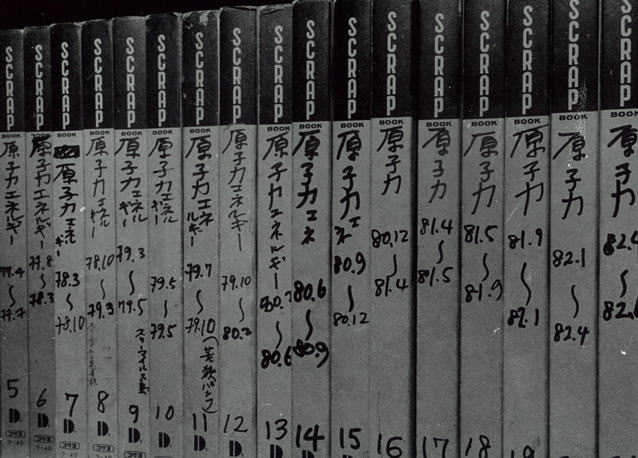 SCRAP
BOOK
原子力エネルギー
77.4
~
77.7
5
コクヨ
ラ-40
SCRAP
BOOK
原子力エネルギー
77.8
~
78.3
6
コクヨ
ラ-40
SCRAP
BOOK
原子力エネルギー
78.3
~
78.10
7
コクヨ
ラ-40
SCRAP
BOOK
原子力エネルギー
78.10
~
79.3
8
コクヨ
ラ-40
SCRAP
BOOK
原子力エネルギー
79.3
~
79.5
スリーマイル
9
コクヨ
ラ-40
SCRAP
BOOK
原子力エネルギー
79.5
~
79.5
10
SCRAP
BOOK
原子力エネルギー
79.7
~
79.10
11
SCRAP
BOOK
原子力エネルギー
79.10
~
80.2
12
SCRAP
BOOK
原子力エネルギー
~
80.6
13
SCRAP
BOOK
原子力エネ
80.6
~
80.9
14
SCRAP
BOOK
原子力エネ
80.9
~
80.12
15
SCRAP
BOOK
原子力
80.12
~
81.4
16
SCRAP
BOOK
原子力
81.4
~
81.5
17
SCRAP
BOOK
原子力
81.5
~
81.9
18
SCRAP
BOOK
原子力
81.9
~
82.1
19
SCRAP
BOOK
原子力
82.1
~
82.4
SCRAP
BOOK
原子力
82.4
~